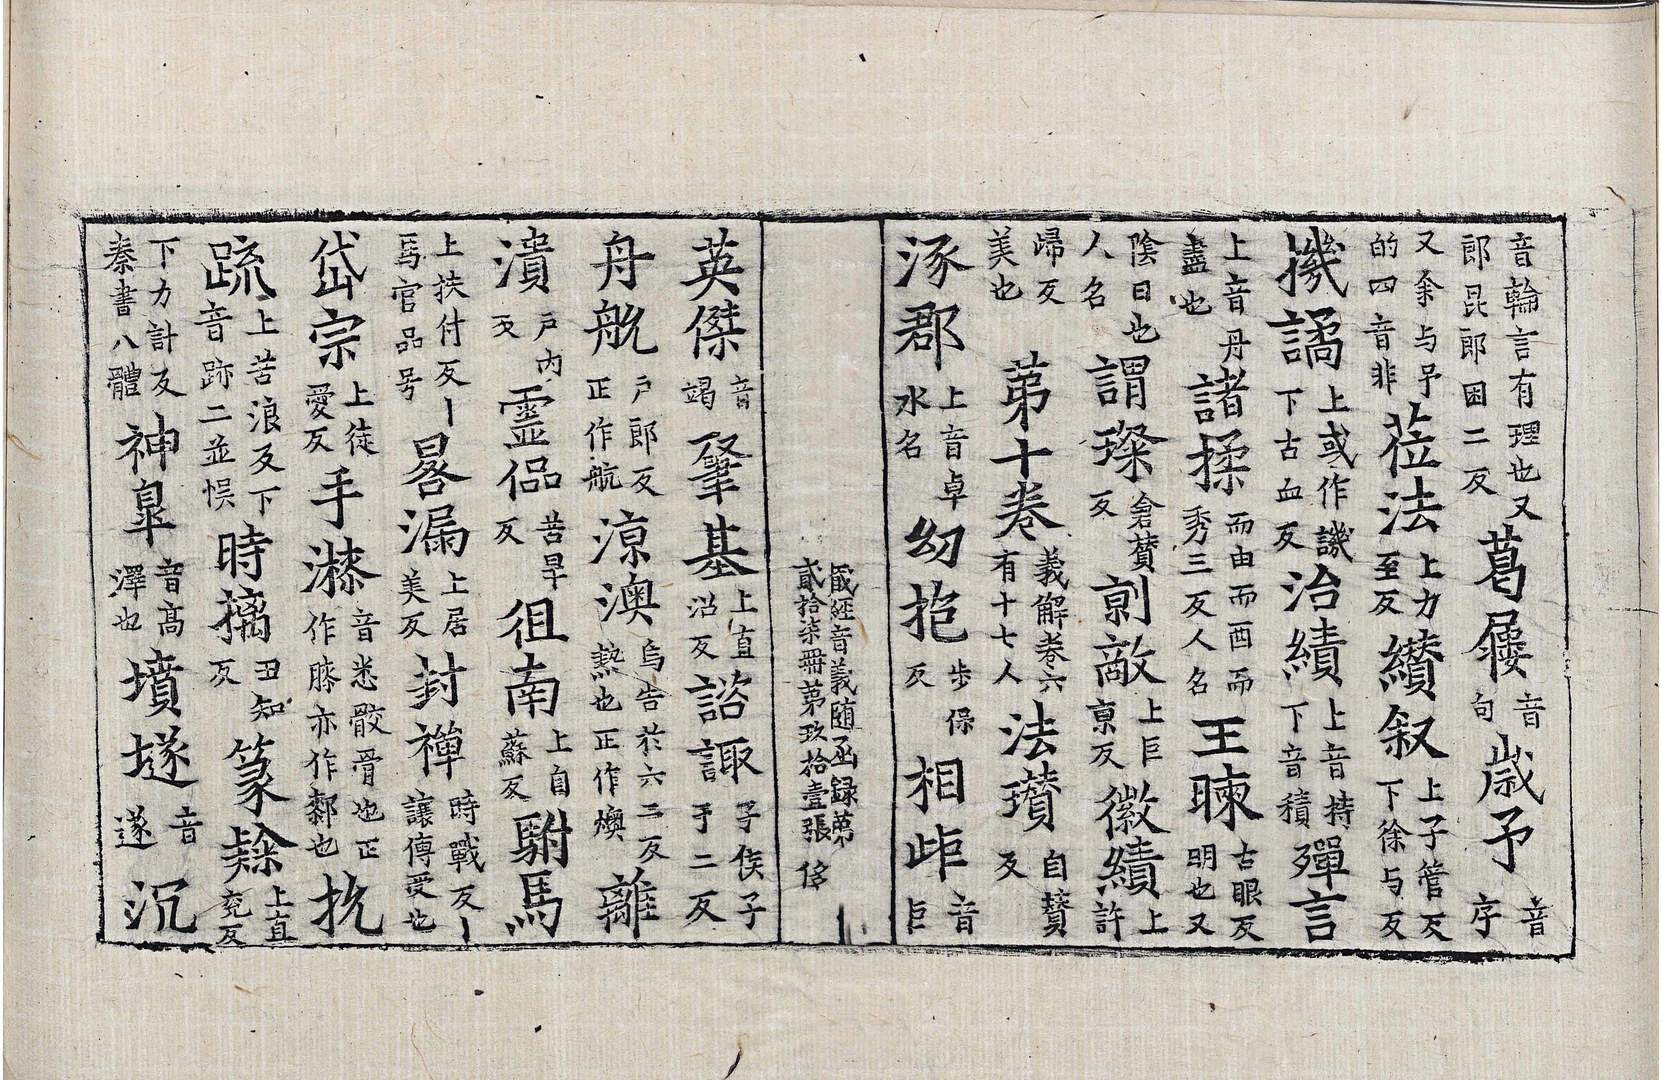 音輪言有理也又郎昆郎困二反葛屨音句歲予音序
又余与予的四音非莅法上力至反纘叙上子管反下徐与反
撠譎上或作譏下古血反治績上音持下音積殫言
上音丹盡也諸揉而由而酉而秀三反人名王暕古眼反明也又
陰日也人名謂璨倉賛反勍敵上巨京反徽績上許
歸反美也第十卷義解卷六有十七人法瓚自賛反
涿郡上音卓水名幼抱步保反相岠音巨
藏經音義随函録第貳拾柒冊第玖拾壹張
英傑音竭肇基上直沼反諮諏子侯子于二反
舟舤户郎反正作航涼澳烏告於六二反熱也正作燠離
潰户內反靈侃苦旱反徂南上自蘇反駙馬
上扶付反丨馬官品号晷漏上居美反封禪時戰反丨讓傳受也
岱宗上徒愛反手漆音悉骰骨也正作膝亦作䣛也抗
疏上苦浪反下音跡二並悮時摛丑知反篆隸上直兖反
下力計反秦書八體神皐音高澤也墳墜音遂沉